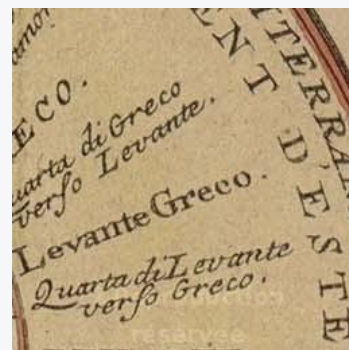 ECO.
Quarta di Greco
verſo Levante.
Levante Greco.
Quarta di Levante
verſo Greco.
ENT D'ESTE
ITERRAN
réservée